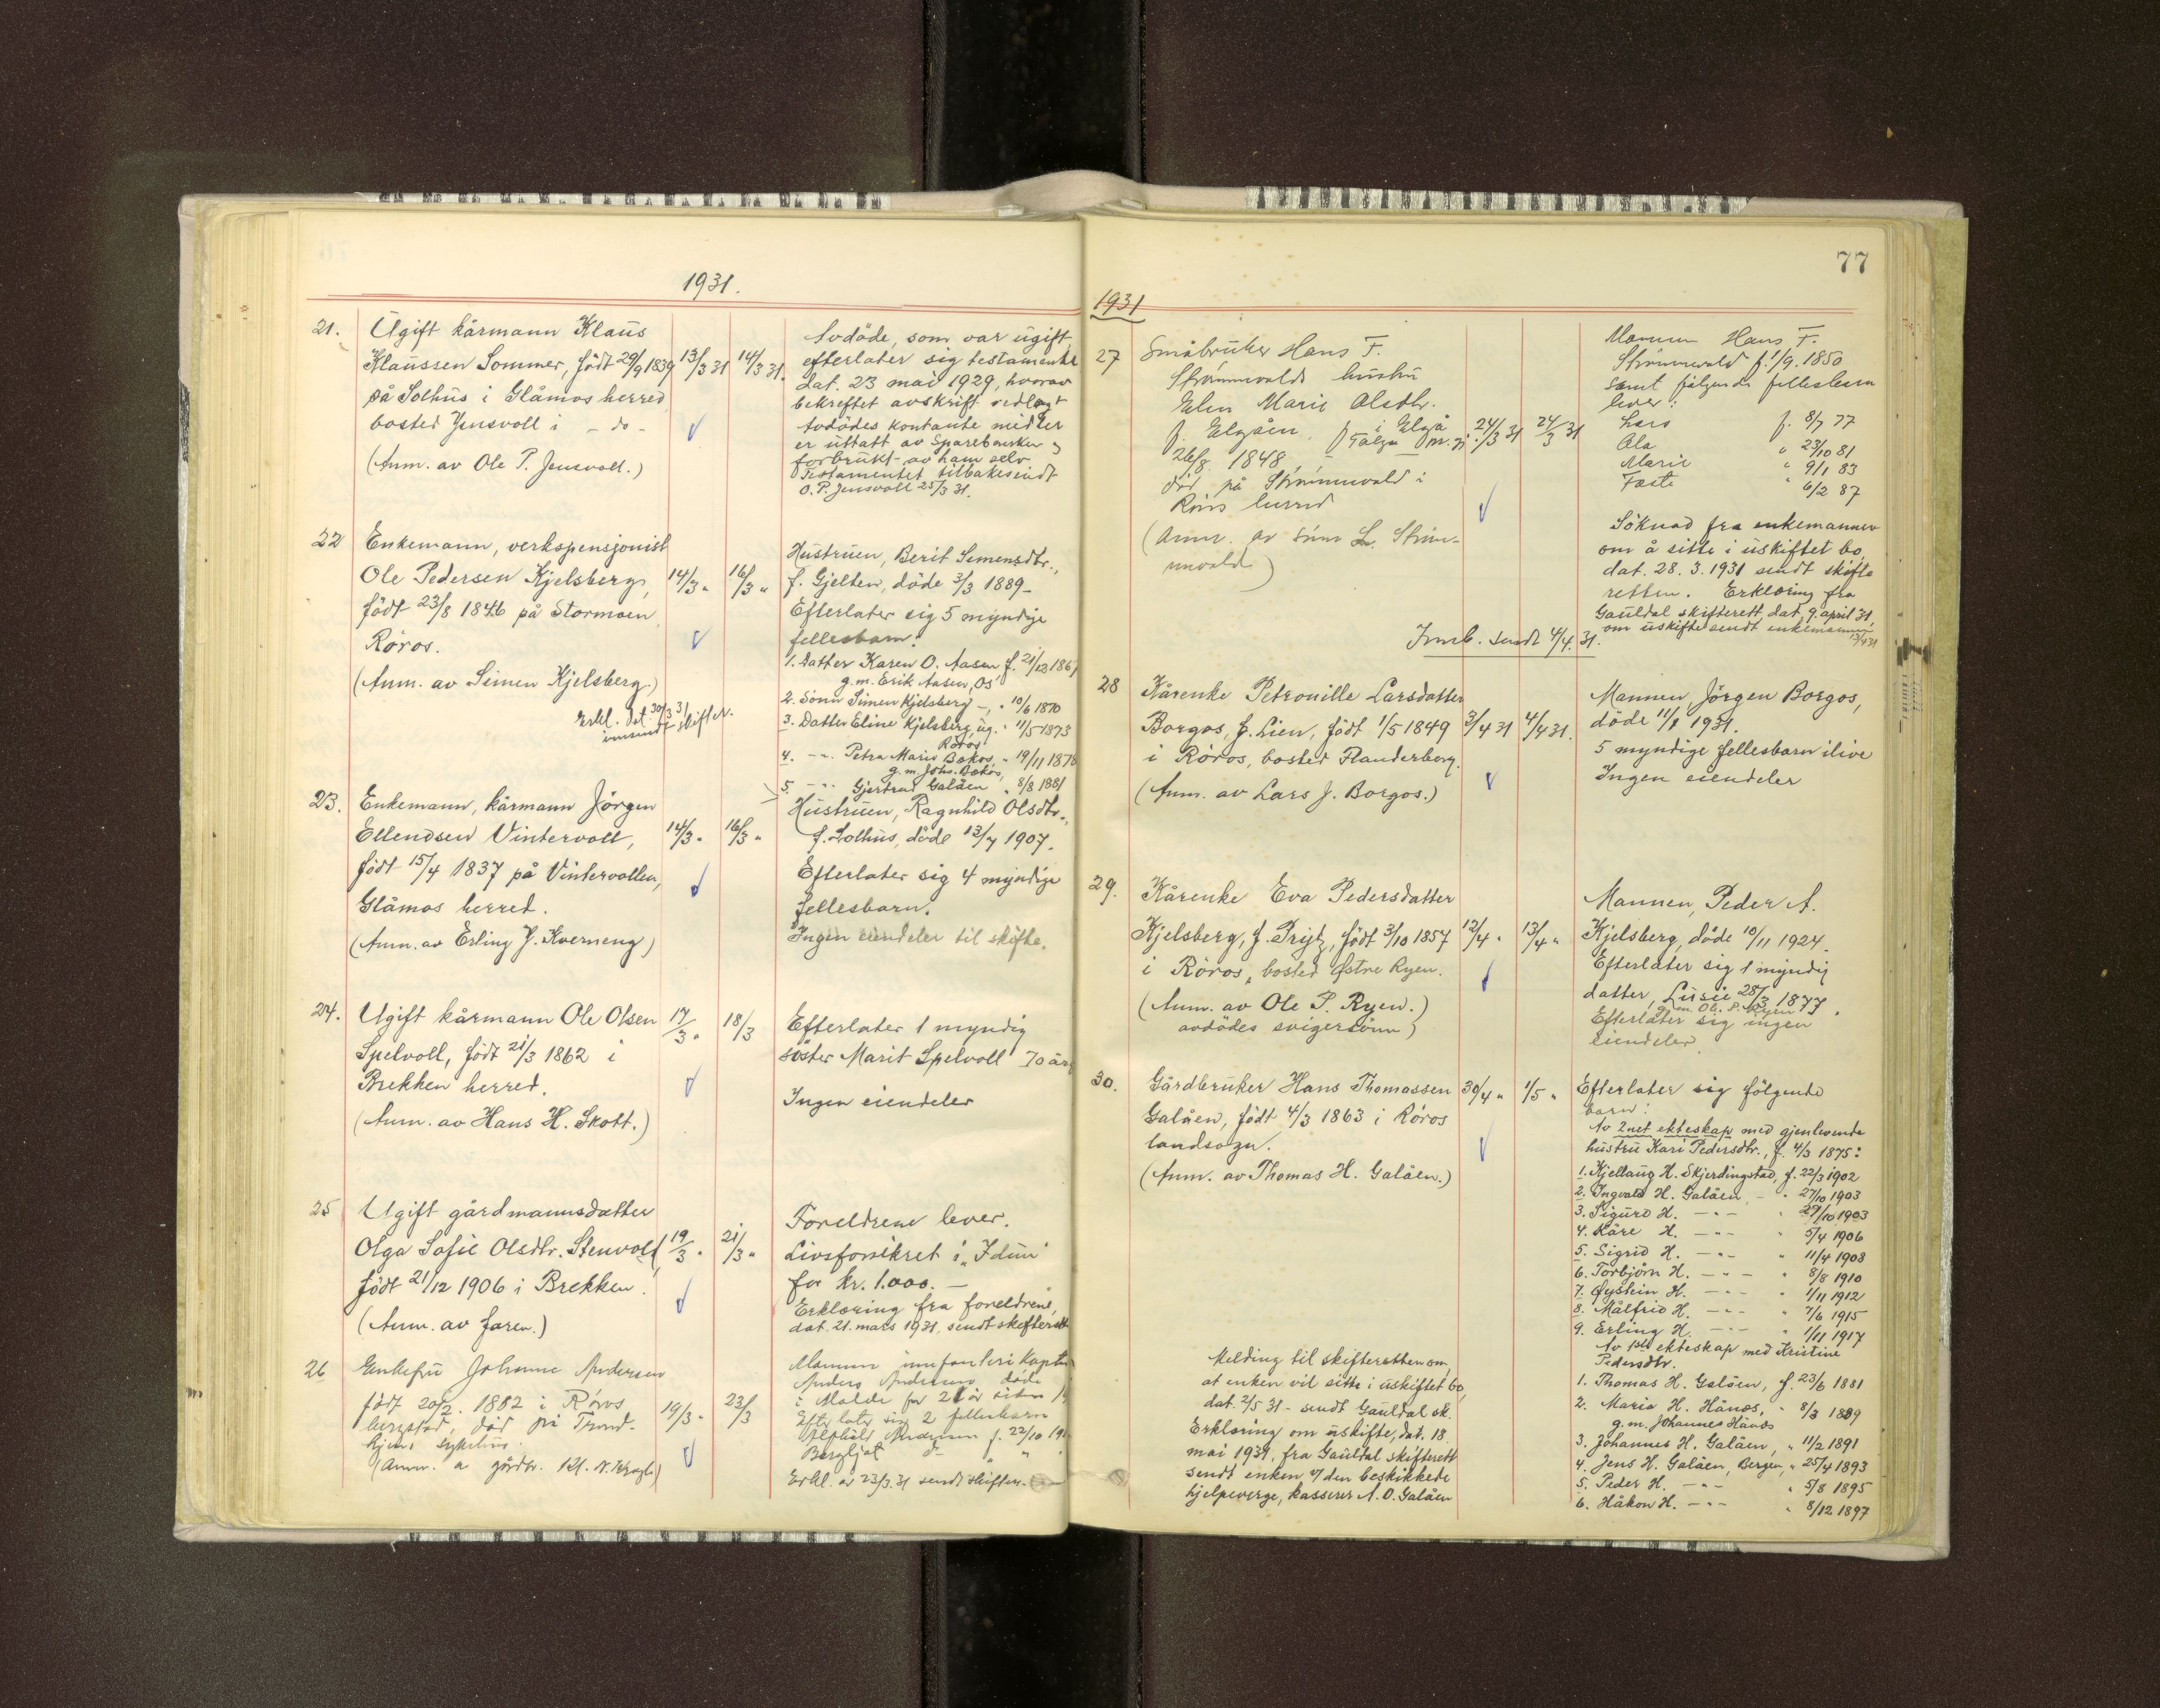 1931.
21. Ugift kårmann Klaus
Klaussen Sommer, født 29/9 1839 13/3 31 14/3 31.
på Solhus i Glåmos herred
bosted Jensvoll i - do -
(Anm. av Ole P. Jensvoll.)
Avdöde, som var ugift,
efterlater sig testamente
dat. 23 mai 1929, hvorav
bekreftet avskrift vedlagt
Avdödes kontante midler
er uttatt av Sparebanken og
forbrukt av ham selv
Testamentet tilbakesendt
O. P. Jensvoll 25/3 31.
22 Enkemann, verkspensjonist
Ole Pedersen Kjelsberg, 14/3 " 16/3 "
født 23/8 1846 på Stormoen
Röros.
(Anm. av Simen Kjelsberg.)
Erkl. dat. 30/3 31
innsendt skifter.
Hustruen, Berit Simensdtr.,
f. Gjelten, döde 3/3 1889 -
Efterlater sig 5 myndige
fellesbarn:
1. Datter Karen O. Aasen f. 21/12 1867
g.m. Erik Aasen, Os
2. Sönn Simen Kjelsberg -, " 10/6 1870
3. Datter Eline Kjelsberg, ug. " 11/5 1873
Röros
4. - " - Petra Marie Bakos, " 19/11 1878
g.m. Johs. Bakos,
5. - " - Gjertrud Galåen " 8/8 1881
23. Enkemann, kårmann Jörgen
Ellendsen Vintervoll, 14/3 " 16/3 "
født 15/4 1837 på Vintervollen,
Glåmos herred.
(Anm. av Erling J. Kverneng)
Hustruen, Ragnhild Olsdtr.,
f. Solhus, döde 13/7 1907.
Efterlater sig 4 myndige
fellesbarn.
Ingen eiendeler til skifte.
24. Ugift kårmann Ole Olsen 17/3 " 18/3
Spelvoll, født 21/3 1862 i
Brekken herred.
(Anm. av Hans H. Skott.)
Efterlater 1 myndig
söster Marit Spelvoll 70 år,
Ingen eiendeler
25 Ugift gårdmannsdatter
Olga Sofie Olsdtr. Stenvold, 19/3 " 21/3 "
født 21/12 1906 i Brekken.
(Anm. av faren.)
Foreldrene lever.
Livsforsikret i "Idun"
for kr. 1.000. -
Erklæring fra foreldrene,
dat. 21. mars 1931, sendt skifterett
26 Enkefru Johanne Andersen
født 20/2. 1882 i Röros
bergstad, död på Trond- 19/3 " 23/3
hjems sykehus.
(Anm. a gårdbr.
Mannen, infanteri kaptein
Anders Andersen döde
i Molde for 21 år siden
Efterlater sig 2 fellesbarn
Andersen f. 22/10
Bergljot
Erkl. av 23/3. 31 sendt skifter.
77
1931
27 Småbruker Hans F.
Strömmevolds hustru
Elen Marie Olsdtr.
f. Elgåen, f. i Elgå 24/3 31 24/3 31
26/8. 1848
död på Strömmevold i
Röros herred
(Anm. av sönn L. Ström-
mevold)
Mannen Hans F.
Strömmevold f. 1/9. 1850
samt følgende fellesbarn
lever:
Lars f. 8/7 77
Ola " 23/10 81
Marie " 9/1 83
6/2 87
Söknad fra enkemannen
om å sitte i uskiftet bo,
dat. 28. 3. 1931 sendt skifte
retten. Erklæring fra
Gauldal skifterett dat. 9. april 31,
om uskifte sendt enkemannen
13/4 31
Innb. sendt 4/4. 31.
28 Kårenke Petronille Larsdatter
Borgos, f. Lien, født 1/5 1849 3/4 31 4/4 31.
i Röros, bosted Flanderborg.
(Anm. av Lars J. Borgos.)
Mannen, Jörgen Borgos,
döde 11/1 1931.
5 myndige fellesbarn ilive
Ingen eiendeler
29. Kårenke Eva Pedersdatter
Kjelsberg, f. Prytz, født 3/10 1857 12/4 " 13/4 "
i Röros, bosted Østre Ryen.
(Anm. av Ole P. Ryen.)
avdödes svigersönn)
Mannen, Peder A.
Kjelsberg, döde 10/11 1924.
Efterlater sig 1 myndig
datter, Lusie 28/3 1877.
g.m. Ole P. Ryen
Efterlater sig ingen
eiendeler
30. Gårdbruker Hans Thomassen 30/4 " 1/5 "
Galåen, født 4/3 1863 i Röros
landsogn.
(Anm. av Thomas H. Galåen.)
Efterlater sig følgende
barn:
Av 2net ekteskap med gjenlevende
hustru Kari Pedersdtr., f. 4/3 1875:
1. Kjellaug H. Skjerdingstad, f. 22/3 1902
2. Ingvald H. Galåen, - " 27/10 1903
3. Sigurd H. - " - " 27/10 1903
4. Kåre H. - " - " 5/4 1906
5. Sigrid H. - " - " 11/4 1908
6. Torbjörn H. - " - " 8/8 1910
7. Øystein H. - " - " 1/11 1912
8. Målfrid H. - " - " 7/6 1915
9. Erling H. - " - " 1/11 1917
Av 1ste ekteskap med Kristine
Pedersdtr.
1. Thomas H. Galåen, f. 23/6 1881
2. Maria H. Hånos, " 8/3 1889
g.m. Johannes Hånos
3. Johannes H. Galåen, " 11/2 1891
4. Jens H. Galåen, Bergen, " 25/4 1893
5. Peder H. - " - " 5/8 1895
6. Håkon H. - " - " 8/12 1897
Melding til skifteretten om,
at enken vil sitte i uskiftet bo,
dat. 2/5 31 - sendt Gauldal sk.
Erklæring om uskifte, dat. 18.
mai 1931, fra Gauldal skifterett
sendt enken v/ den beskikkede
hjelpeverge, kasserer A. O. Galåen